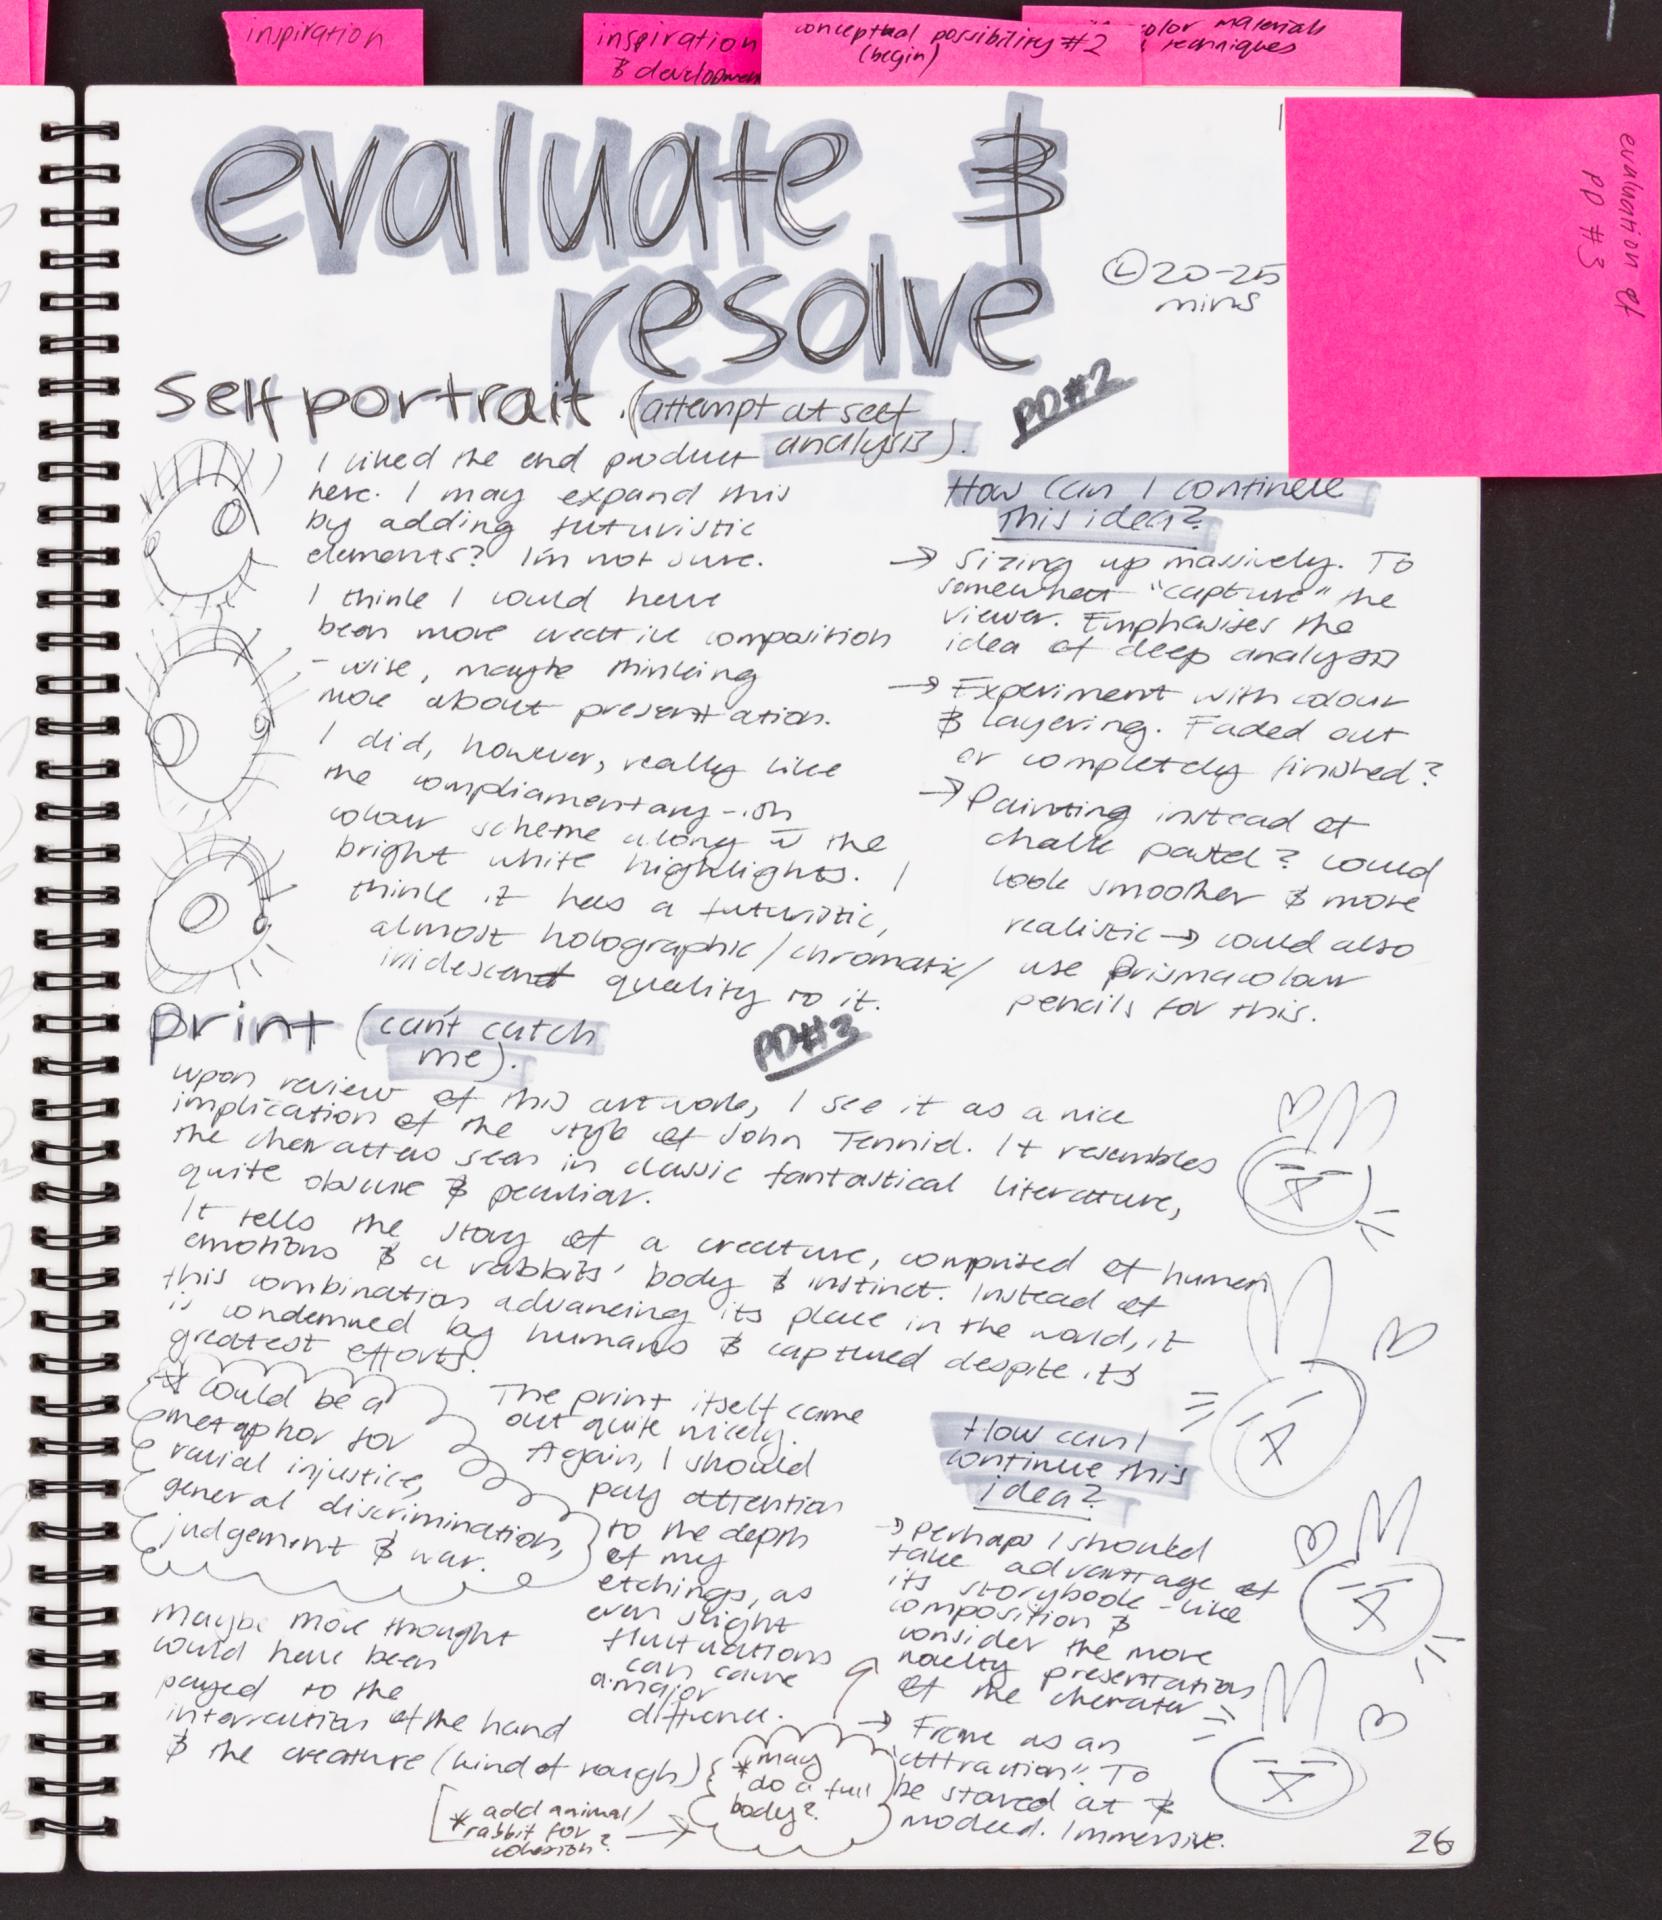 inspiration
inspiration
& developmen
conceptual possibility #2
(begin)
olor materials
& techniques
evaluation of
PD #3
evaluate &
resolve
20-25
mins
self portrait. (attempt at self
analysis).
PD#2
I liked the end product
here. I may expand this
by adding futuristic
elements? I'm not sure.
I think I could have
been more creative composition
-wise, maybe thinking
more about presentation.
I did, however, really like
the compliamentary-ish
colour scheme along w the
bright white highlights. I
think it has a futuristic,
almost holographic/chromatic/
iridescent quality to it.
How can I continue
this idea?
→ Sizing up massively. To
somewhat "capture" the
viewer. Emphasises the
idea of deep analysis
→ Experiment with colour
& layering. Faded out
or completely finished?
→ Painting instead of
chalk pastel? could
look smoother & more
realistic → could also
use prismacolour
pencils for this.
print (can't catch
me).
PD#3
upon review of this artwork, I see it as a nice
implication of the style of John Tenniel. It resembles
the characters seen in classic fantastical literature,
quite obscure & peculiar.
It tells the story of a creature, comprised of human
emotions & a rabbits' body & instinct. Instead of
this combination advancing its place in the world, it
is condemned by humans & captured despite its
greatest efforts.
* could be a
metaphor for
racial injustice,
general discrimination,
judgement & war.
The print itself came
out quite nicely.
Again, I should
pay attention
to the depth
of my
etchings, as
even slight
fluctuations
can cause
a major
difference.
Maybe more thought
could have been
payed to the
interraction of the hand
& the creature (kind of rough)
* add animal/
rabbit for
cohesion?
* may
do a full
body?
How can I
continue this
idea?
→ perhaps I should
take advantage of
its storybook-like
composition &
consider the more
novelty presentation
of the charater
→ Frame as an
"attraction". To
be stared at &
mocked. Immersive.
26